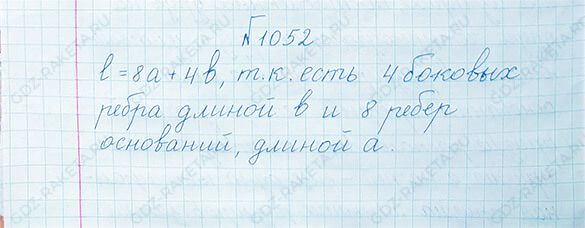 №1052
l = 8a + 4b, т.к. есть 4 боковых
ребра длиной b и 8 ребер
оснований, длиной a.
GDZ-RAKETA.RU